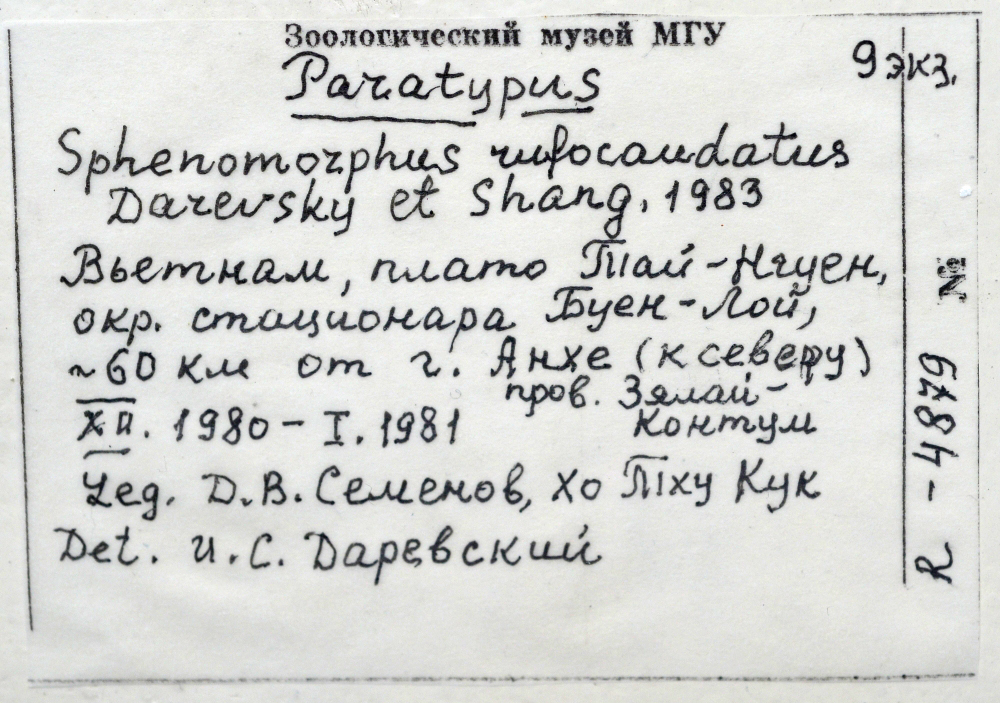 Зоологический музей МГУ
Paratypus
9 экз.
Sphenomorphus rufocaudatus
Darevsky et Shang, 1983
Вьетнам, плато Тай-Нгуен,
окр. стационара Буен-Лой,
~60 км от г. Анхе (к северу)
пров. Зялай-
Контум
XII. 1980 - I. 1981
Leg. Д.В. Семенов, Хо Тху Кук
Det. И.С. Даревский
№ R - 4879